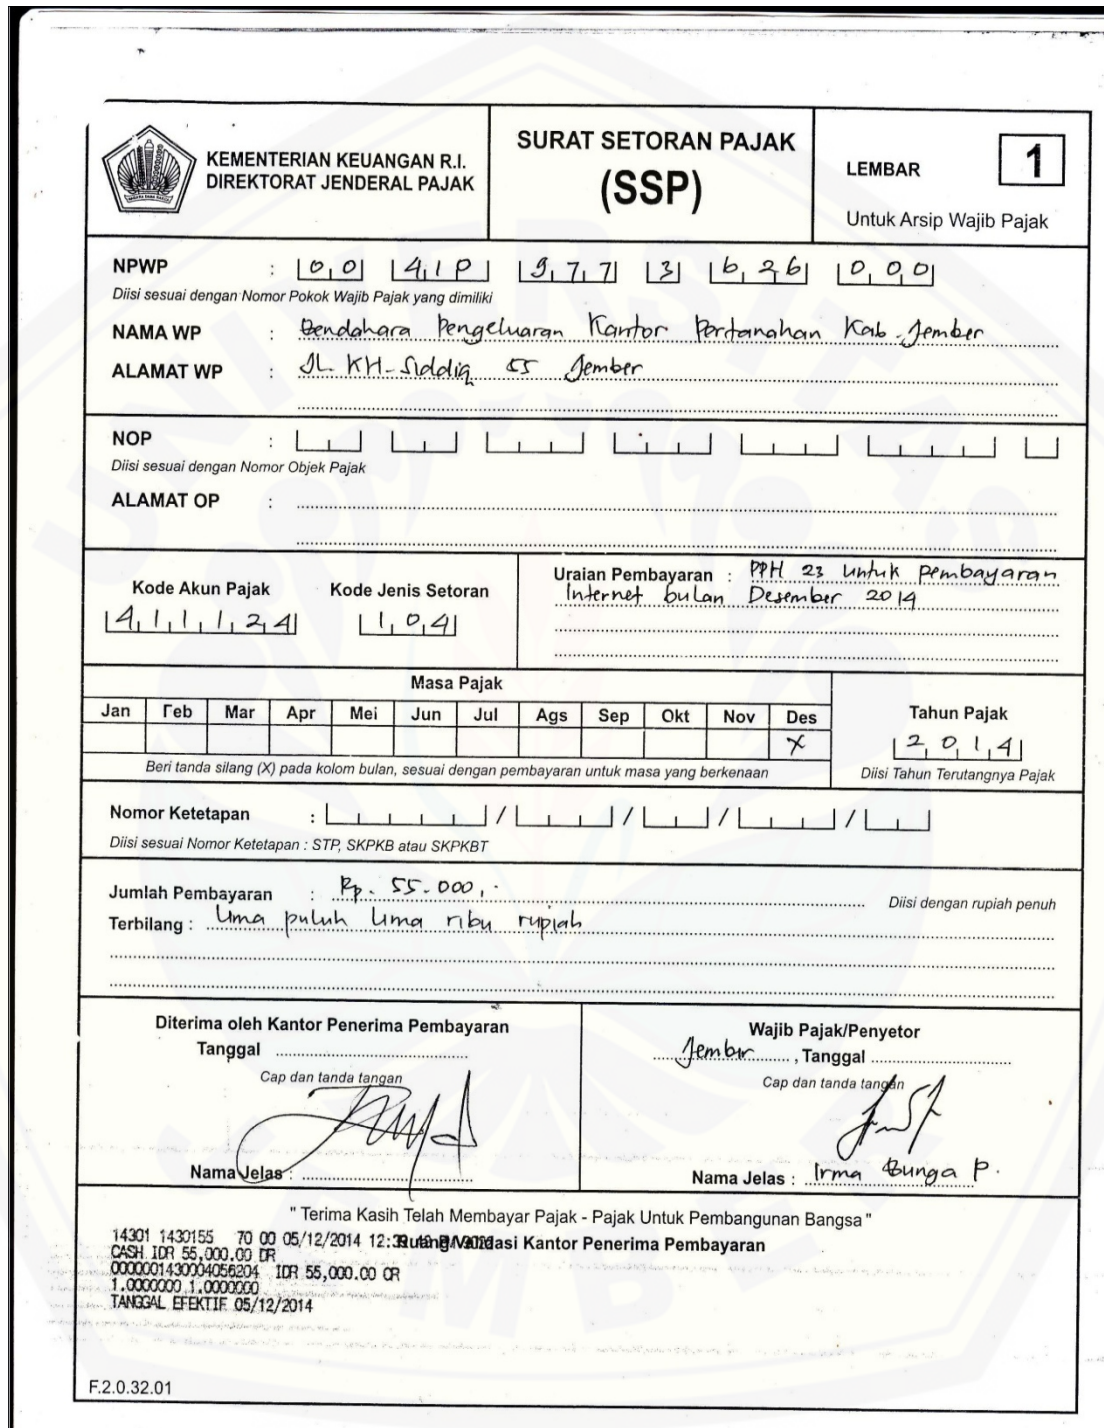 KEMENTERIAN KEUANGAN R.I.
DIREKTORAT JENDERAL PAJAK
SURAT SETORAN PAJAK
(SSP)
LEMBAR 1
Untuk Arsip Wajib Pajak
NPWP : 00 977 3 626 000
Diisi sesuai dengan Nomor Pokok Wajib Pajak yang dimiliki
NAMA WP : Bendahara Pengeluaran Kantor Pertanahan Kab. Jember
ALAMAT WP : JL. KH. Siddiq 55 Jember
NOP :
Diisi sesuai dengan Nomor Objek Pajak
ALAMAT OP :
Kode Akun Pajak
411124
Kode Jenis Setoran
104
Uraian Pembayaran : PPH 23 untuk pembayaran
Internet bulan Desember 2014
Masa Pajak
Jan Feb Mar Apr Mei Jun Jul Ags Sep Okt Nov Des
X
Beri tanda silang (X) pada kolom bulan, sesuai dengan pembayaran untuk masa yang berkenaan
Tahun Pajak
2014
Diisi Tahun Terutangnya Pajak
Nomor Ketetapan : / / / /
Diisi sesuai Nomor Ketetapan : STP, SKPKB atau SKPKBT
Jumlah Pembayaran : Rp. 55.000,-
Diisi dengan rupiah penuh
Terbilang : Lima puluh lima ribu rupiah
Diterima oleh Kantor Penerima Pembayaran
Tanggal
Cap dan tanda tangan
Nama Jelas :
Wajib Pajak/Penyetor
Jember, Tanggal
Cap dan tanda tangan
Nama Jelas : Irma Bunga P.
" Terima Kasih Telah Membayar Pajak - Pajak Untuk Pembangunan Bangsa "
Ruang Validasi Kantor Penerima Pembayaran
14301 1430155 70 00 05/12/2014
CASH IDR 55,000.00 DR
0000001430004056204 IDR 55,000.00 CR
1.0000000 1.0000000
TANGGAL EFEKTIF 05/12/2014
F.2.0.32.01
UNIVERSITAS JEMBER